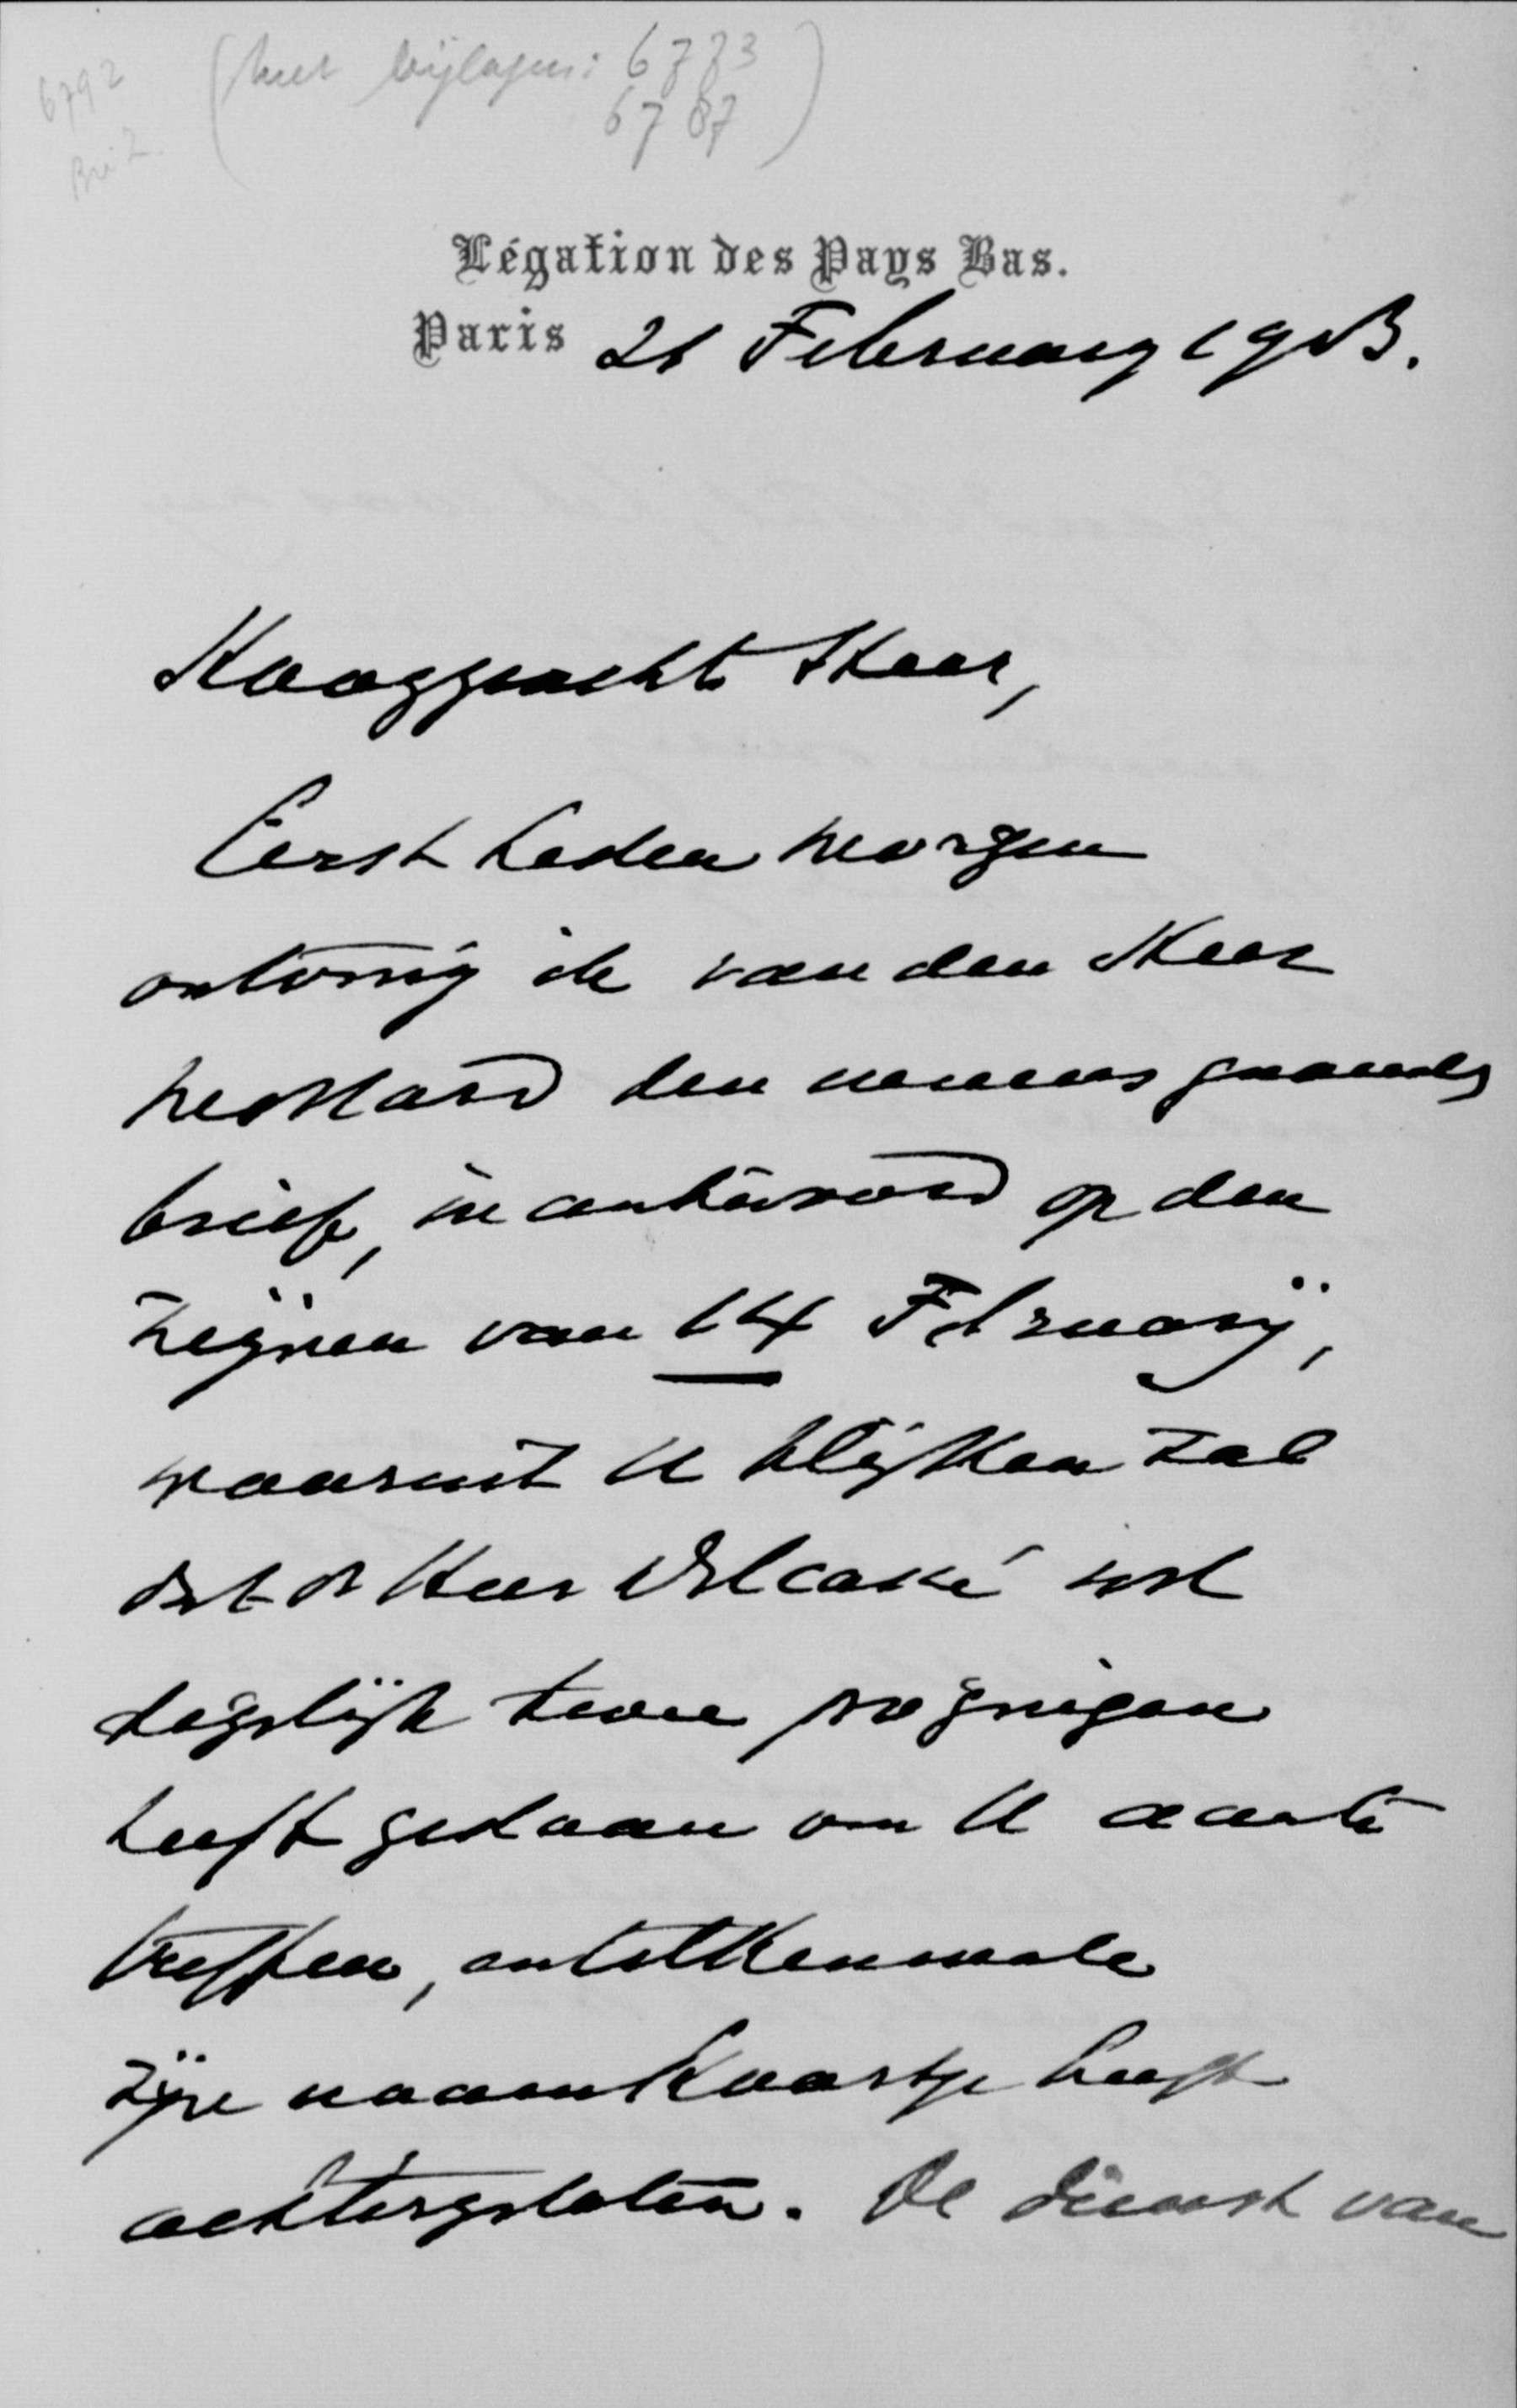 6792
(met bijlagen: 6773
6787)
Légation des Pays Bas.
Paris 21 February 1903.
Hooggeachte Heer,
Eerst heden morgen
ontving ik van den Heer
den nevensgaande
brief, in antwoord op den
mijnen van 14 February,
waaruit U blijken zal
dat de Heer Delcassé wel
degelijk twee pogingen
heeft gedaan om U aan te
treffen, en telkenmale
zijn naamkaartje heeft
achtergelaten. De dienst van